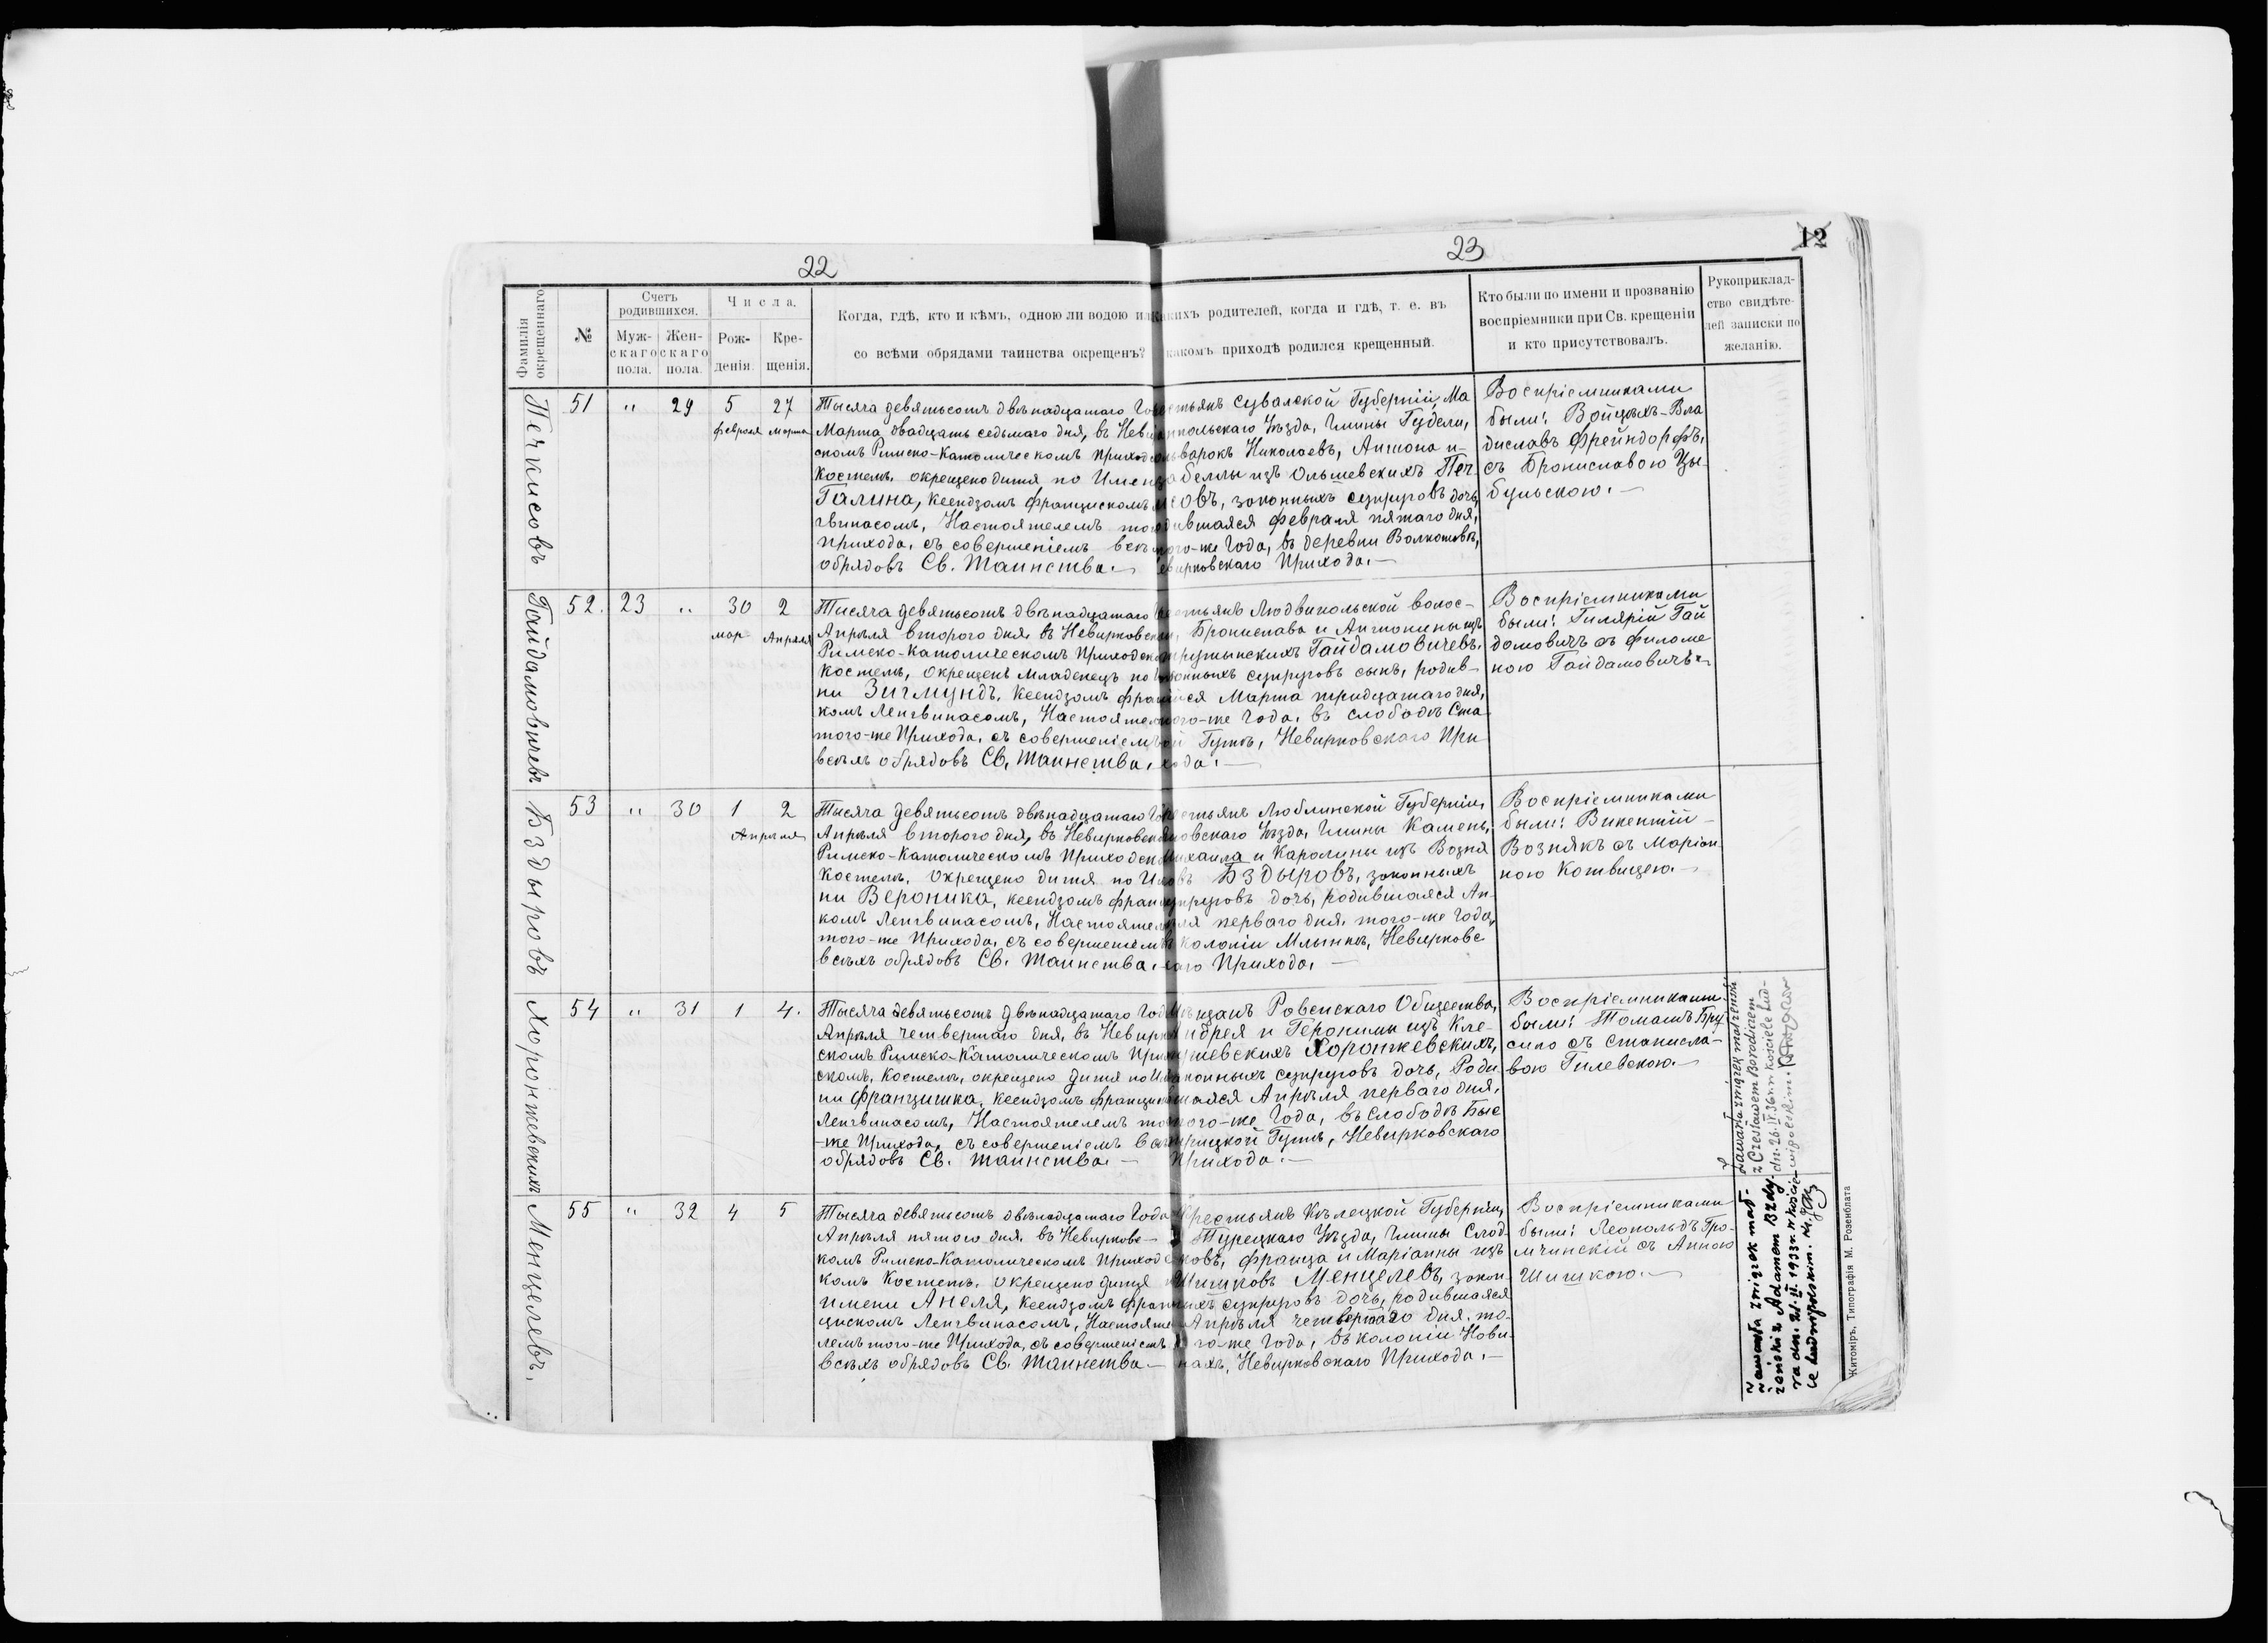 22
23
12
Фамилія окрещеннаго.
№
Счетъ родившихся.
Муж-скаго пола.
Жен-скаго пола.
Числа.
Рож-денія.
Кре-щенія.
Когда, гдѣ, кто и кѣмъ, одною ли водою или
со всѣми обрядами таинства окрещенъ?
какихъ родителей, когда и гдѣ, т. е. въ
какомъ приходѣ родился крещенный.
Кто были по имени и прозванію
воспріемники при Св. крещеніи
и кто присутствовалъ.
Рукоприклад-
ство свидѣте-
лей записки по
желанію.
Печкисовъ
51 " 29 5 27
февраля марта
Тысяча девятьсотъ двѣнадцатаго Го
Марта двадцать седьмаго дня, въ Невир
скомъ Римско-Католическомъ Приходск
Костелѣ, окрещено дитя по Имени
Галина, Ксендзомъ Францискомъ
гвинасомъ, Настоятелемъ то
Прихода, съ совершеніемъ всѣ
обрядовъ Св. Таинства.—
стьянъ Сувалской Губерніи, Ма
ріампольскаго Уѣзда, Гмины Гудели,
Фольварокъ Николаевъ, Антона и
Изабеллы изъ Ольшевскихъ Печ-
кисовъ, законныхъ супруговъ дочь,
родившаяся Февраля пятаго дня,
того-же Года, въ деревни Волкошовѣ,
Невирковскаго Прихода.—
Воспріемниками
были: Войцѣхъ-Вла
диславъ Фрейндорфъ,
съ Брониславою Цы-
бульскою.—
Гайдамовичевъ
52. 23 " 30 2
мар Апрѣля
Тысяча девятьсотъ двѣнадцатаго
Апрѣля втораго дня, въ Невирковско
Римско-Католическомъ Приходск
Костелѣ, окрещенъ Младенецъ по
ни Зигмундъ, Ксендзомъ Фран
комъ Ленгвинасомъ, Настояте
того-же Прихода, съ совершеніемъ
всѣхъ обрядовъ Св. Таинства.
стьянъ Людвипольской волос-
ти, Бронислава и Антонины изъ
Гайдамовичевъ,
законныхъ супруговъ сынъ, родив-
шійся Марта тридцатаго дня,
того-же Года, въ слободѣ Ста
рой Гутѣ, Невирковскаго При
хода.—
Воспріемниками
были: Гилярій Гай
домовичъ съ Филоме
ною Гайдамовичъ.—
Бздыровъ
53 " 30 1 2
Апрѣля
Тысяча девятьсотъ двѣнадцатаго Го
Апрѣля втораго дня, въ Невирковско
Римско-Католическомъ Приходск
Костелѣ, Окрещено дитя по И
ни Вероника, Ксендзомъ Фран
комъ Ленгвинасомъ, Настояте
того-же Прихода, съ совершеніем
всѣхъ обрядовъ Св. Таинства.
крестьянъ Люблинской Губерніи,
новскаго Уѣзда, Гмины Камень,
Михаила и Каролины изъ Возня
ковъ Бздыровъ, законныхъ
супруговъ дочь, родившаяся Ап-
рѣля перваго дня, того-же Года,
въ колоніи Млынкѣ, Невирковс
каго Прихода.—
Воспріемниками
были: Викентій
Вознякъ съ Маріан
ною Котвицею.—
Хоронжевскихъ
54 " 31 1 4.
Тысяча девятьсотъ двѣнадцатаго Год
Апрѣля четвертаго дня, въ Невирко
скомъ Римско-Католическомъ При
скомъ, Костелѣ, окрещено дитя по И
ни Францишка, Ксендзомъ Франциско
Ленгвинасомъ, Настоятелемъ то
-же Прихода, съ совершеніемъ всѣ
обрядовъ Св. Таинства.—
Мѣщанъ Ровенскаго Общества,
Андрея и Геронимы изъ Кле-
Хоронжевскихъ,
законныхъ супруговъ дочь, Роди
вшаяся Апрѣля перваго дня,
того-же Года, въ слободѣ Быс
трицкой Гутѣ, Невирковскаго
Прихода.—
Воспріемниками
были: Томашъ Бру
сило съ Станисла-
вою Гилевскою.—
zawarła związek małżeński
z Czesławem Borodziczem
dn. 26.IV.36 r. w kościele lud-
wipolskim.
Менцелевъ.
55 " 32 4 5
Тысяча девятьсотъ двѣнадцатаго Года
Апрѣля пятаго дня, въ Невирковс
комъ Римско-Католическомъ Приходс
комъ Костелѣ, окрещено дитя
имени Анеля, Ксендзомъ Фран
цискомъ Ленгвинасомъ, Настояте
лемъ того-же Прихода, съ совершеніемъ
всѣхъ обрядовъ Св. Таинства—
Крестьянъ Кѣлецкой Губерніи,
Турецкаго Уѣзда, Гмины Слод
ковъ, Франца и Маріанны изъ
Шишковъ Менцелевъ, закон
ныхъ супруговъ дочь, родившаяся
Апрѣля четвертаго дня, то-
го-же Года, въ колоніи Нови-
нахъ, Невирковскаго Прихода.—
Воспріемниками
были: Леопольдъ Гро-
мчинскій съ Анною
Шишкою.—
Zawarła związek mał-
żeński z Adamem Bzdy-
ra dn. 21.II.1933 r. w koście-
le ludwipolskim.
Житоміръ, Типографія М. Розенблата